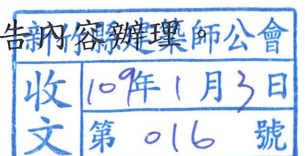 告內容辦理。
新竹縣建築師公會
收文
109年1月3日
第016號